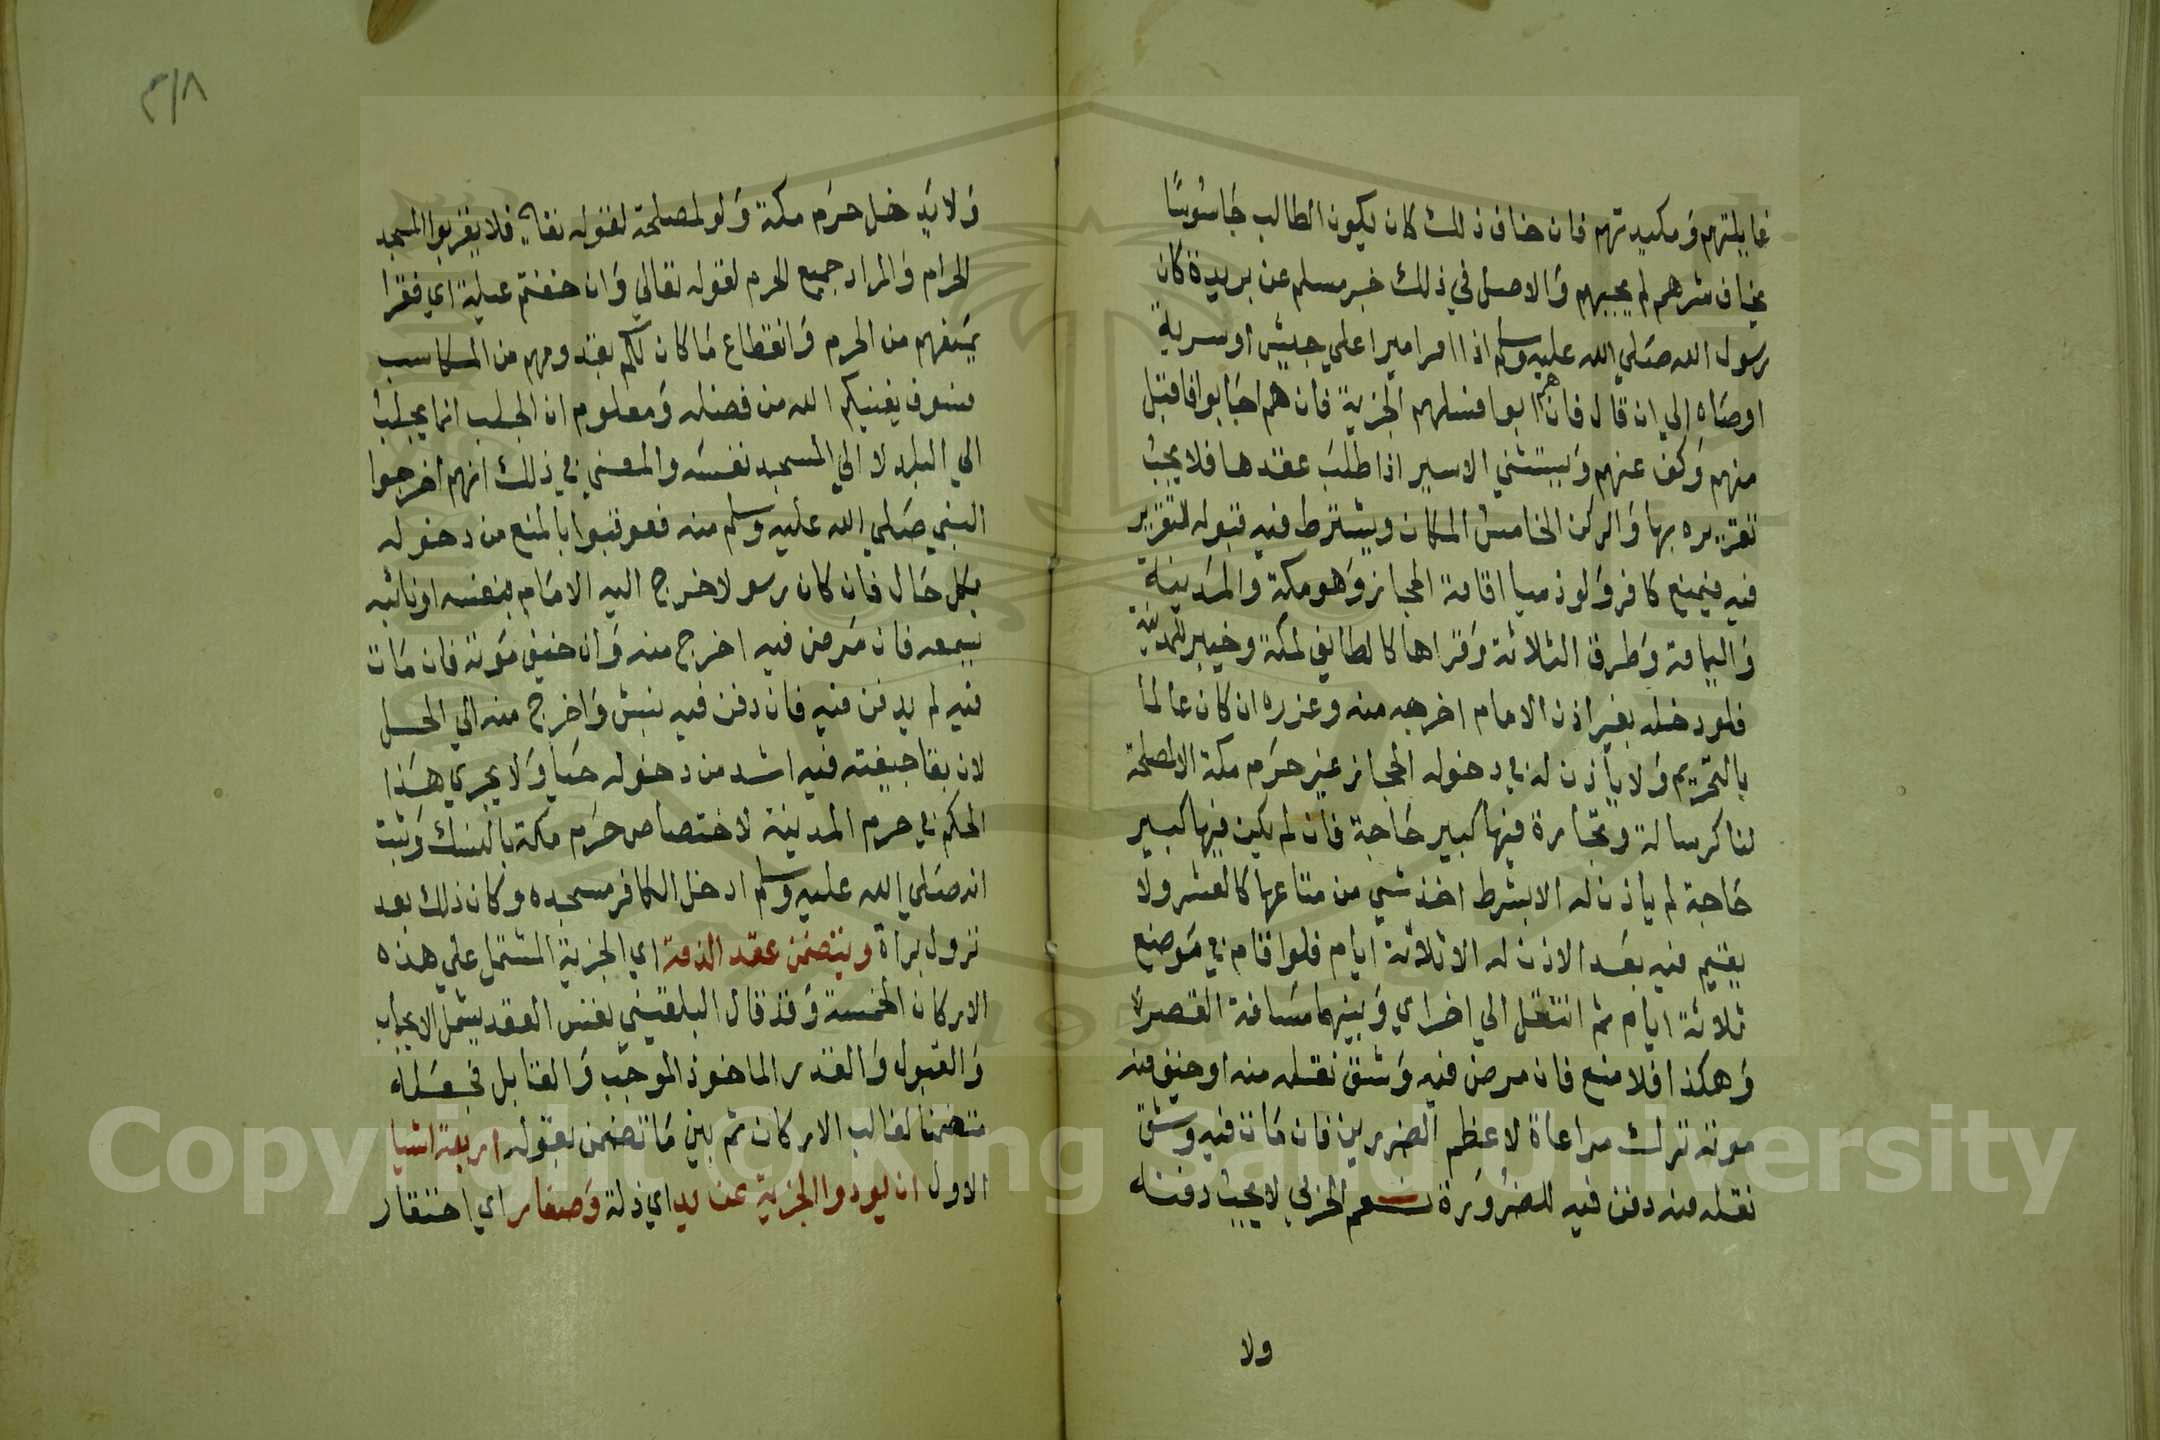 غايلتهم ومكيدتهم فان خاف ذلك كان يكون الطالب جاسوسا
يخاف شرهم لم يجبهم والاصل في ذلك خبر مسلم عن بريدة كان
رسول الله صلي الله عليه وسلم اذا امر اميرا علي جيش او سرية
اوصاه الي ان قال فان هم ابوا فسلهم الجزية فان هم اجابوا فاقبل
منهم وكف عنهم ويستثني الاسير اذا طلب عقدها فلا يجب
تقريره بها والركن الخامس المكان ويشترط فيه قبوله للتقرير
فيه فيمنع كافر ولو ذميا اقامة الحجاز وهو مكة والمدينة
واليمامة وطرق الثلاثة وقراها كالطايف لمكة وخيبر للمدينة
فلو دخله بغير اذن الامام اخرجه منه وعزره ان كان عالما
بالتحريم ولا ياذن له في دخوله الحجاز غير حرم مكة الا لمصلحة
لنا كرسالة وتجارة فيها كبير حاجة فان لم يكن فيها كبير
حاجة لم ياذن له الا بشرط اخذ شي من متاعها كالعشر ولا
يقيم فيه بعد الاذن له الا ثلاثة ايام فلو اقام في موضع
ثلاثة ايام ثم انتقل الي اخراي وبينهما مسافة القصر
وهكذا فلا منع فان مرض فيه وشق نقله منه او خيف منه
موته ترك مراعاة لاعظم الضررين فان مات فيه وشق
نقله منه دفن فيه للضرورة نعم الحربي لا يجب دفنه
ولا
٣١٨
ولا يدخل حرم مكة ولو لمصلحة لقوله تعالي فلا يقربوا المسجد
الحرام والمراد جميع الحرم لقوله تعالي وان خفتم عيلة اي فقرا
يمنعهم من الحرم وانقطاع ما كان لكم بقدومهم من المكاسب
فسوف يغنيكم الله من فضله ومعلوم ان الجلب انما يجلب
الي البلد لا الي المسجد نفسه والمعني في ذلك انهم اخرجوا
النبي صلي الله عليه وسلم منه فعوقبوا بالمنع من دخوله
بكل حال فان كان رسولا خرج اليه الامام بنفسه او نائبه
يسمعه فان مرض فيه اخرج منه وان خيف موته فان مات
فيه لم يدفن فيه فان دفن فيه نبش واخرج منه الي الحل
لان بقا جيفته فيه اشد من دخوله حيا ولا يجري هذا
الحكم في حرم المدينة لاختصاص حرم مكة بالنسك وثبت
انه صلي الله عليه وسلم ادخل الكافر مسجده وكان ذلك بعد
نزول براة ويتضمن عقد الذمة اي الجزية المشتمل علي هذه
الاركان الخمسة وقد قال البلقيني نفس العقد يشمل الايجاب
والقبول والقدر الماخوذ الموجب والقابل فجعله
متضمنا لغالب الاركان ثم بين ما تضمن بقوله اربعة اشيا
الاول ان يودوا الجزية عن يد اي ذلة وصغار اي احتقار
Copyright © King Saud University
1957